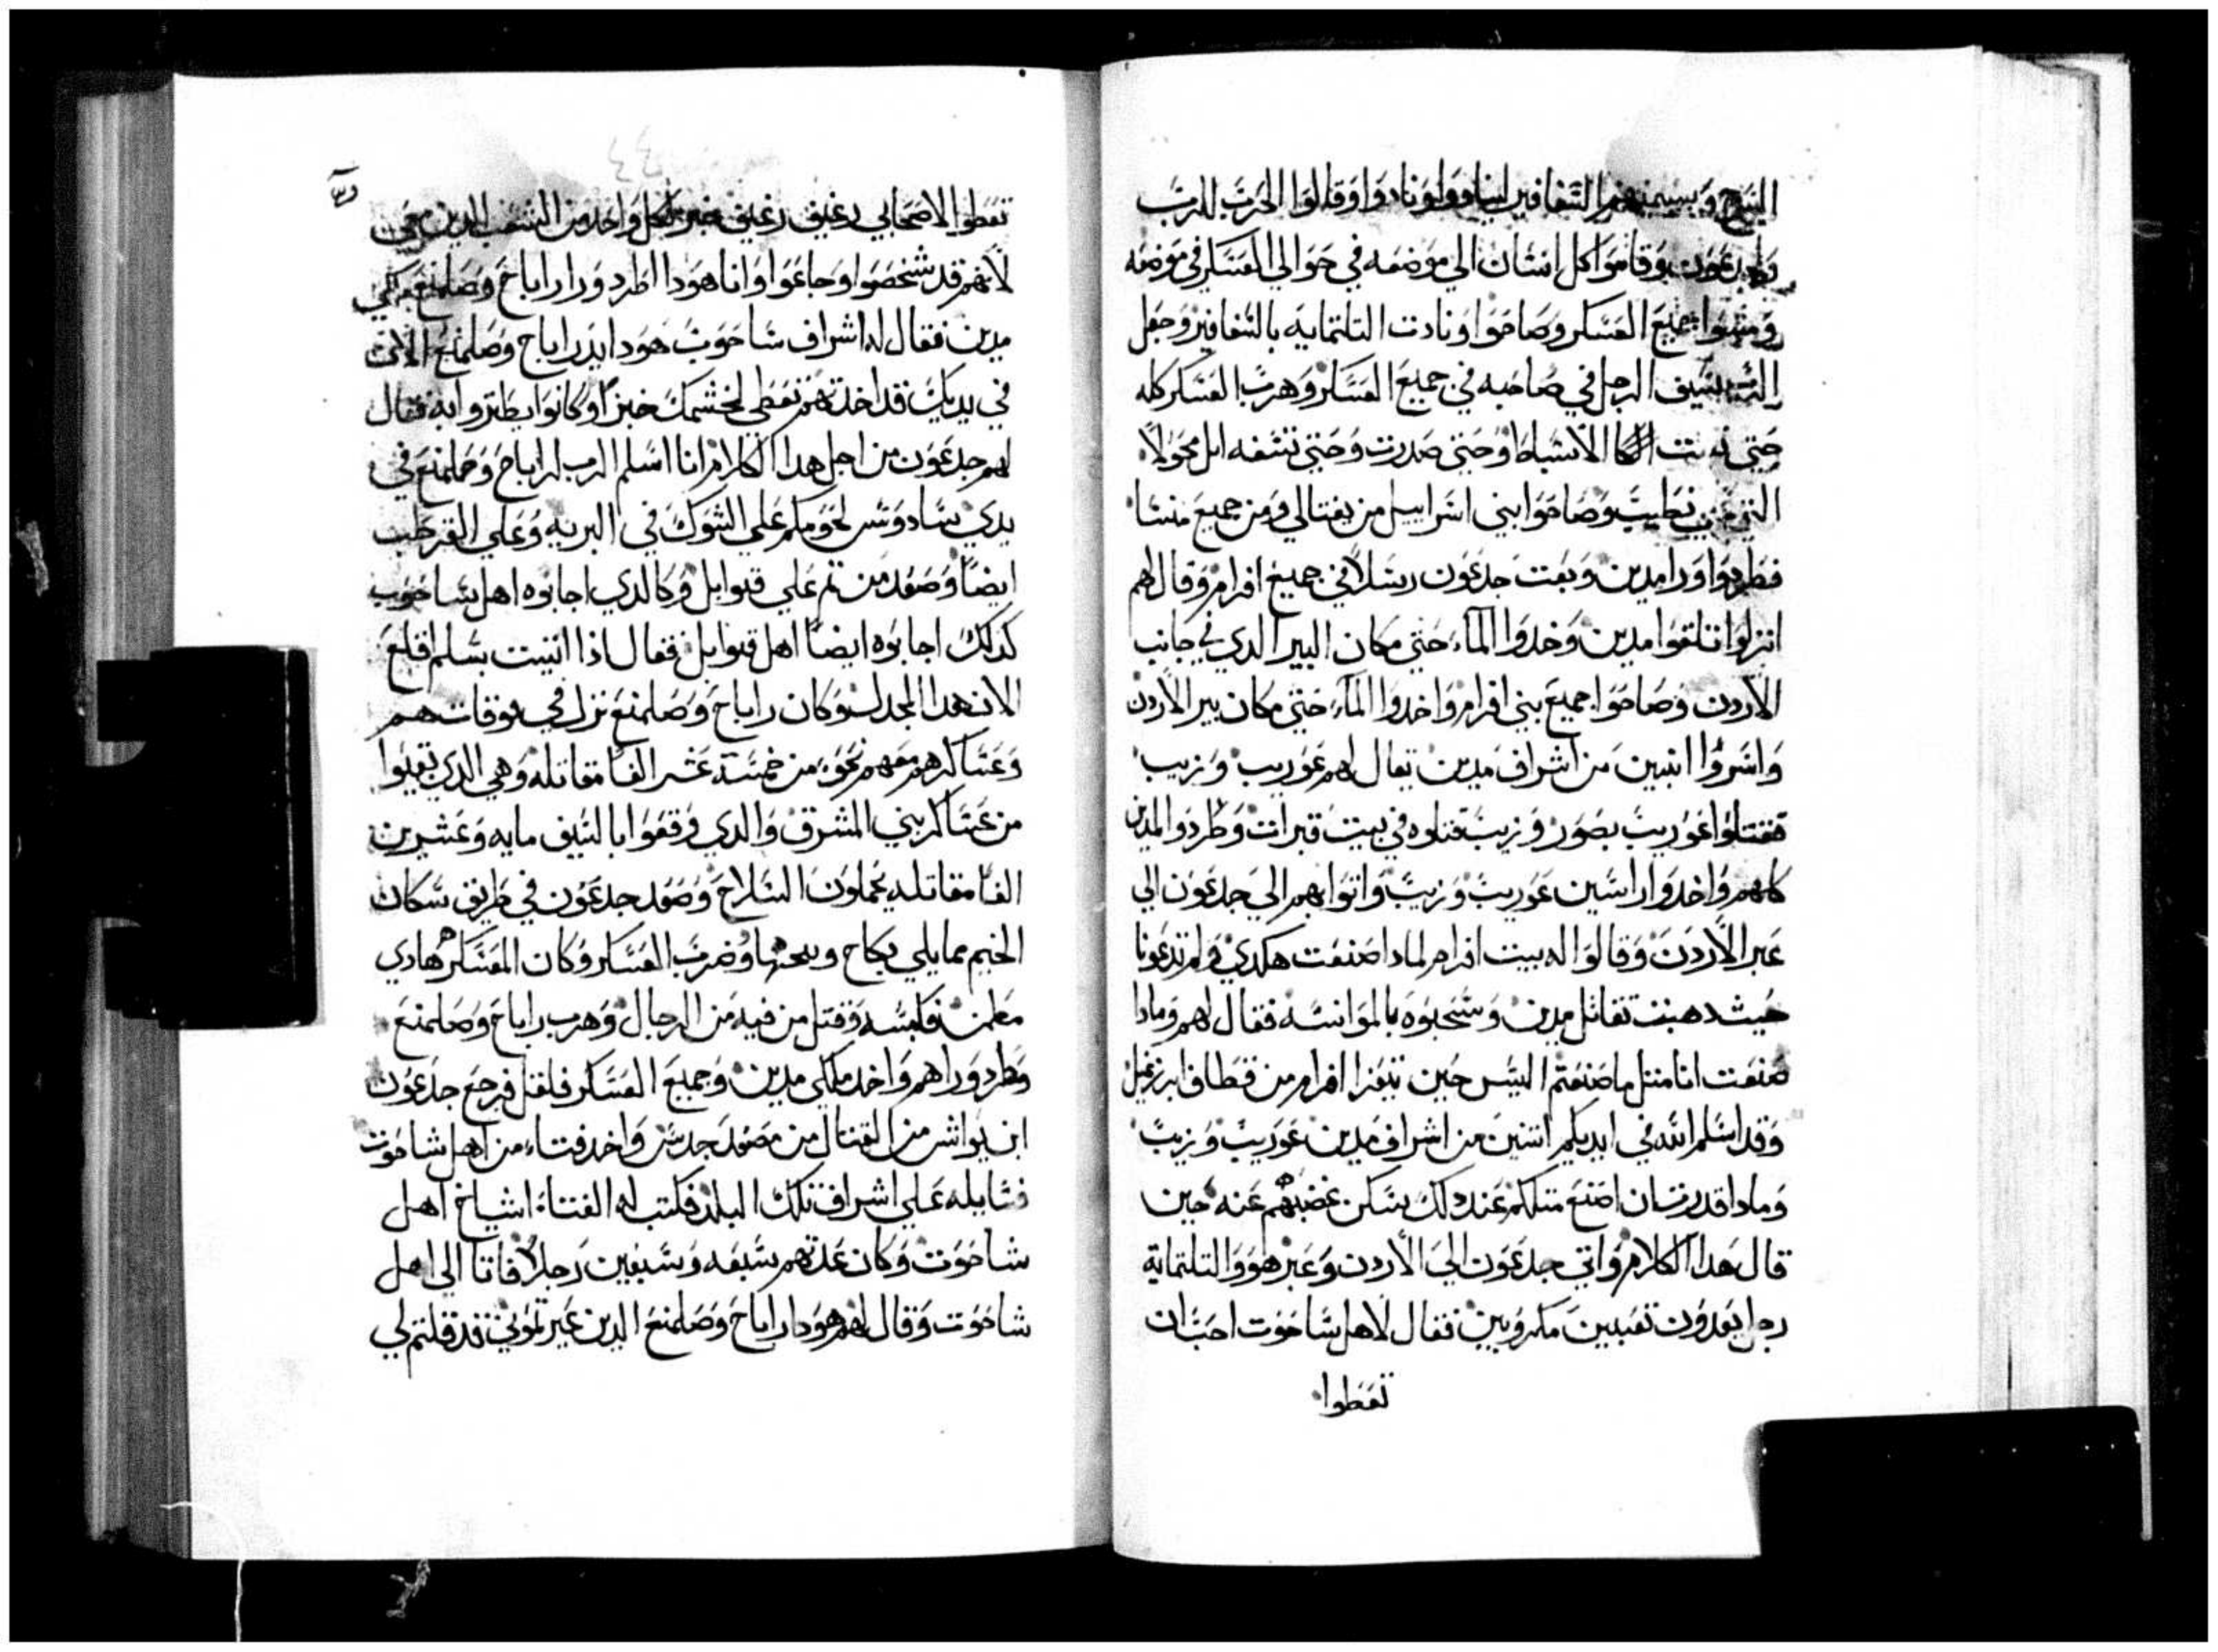 السرج وبيمينهم السافير لينادوا ونادوا وقالوا الحرب للرب
ولجدعون وقاموا كل انسان الي موضعه في حوالي العسكر في موضعه
ومشوا جميع العسكر وصاحوا ونادت التلتمايه بالسافير وجعل
الرب سيف الرجل في صاحبه في جميع العسكر وهرب العسكر كله
حتي بيت الاسباط وحتي صدرت وحتي تشفه ابل محولا
التي نطبت وصاحوا بني اسراييل من نفتالي ومن جميع منسا
فطردوا ورا مدين وبعت جدعون رسلا في جميع افرام وقال لهم
انزلوا تلقوا مدين وخدوا الماء حتي مكان البير الدي في جانب
الاردن وصاحوا جميع بني افرام واخدوا الماء حتي مكان بير الاردن
واسروا اتنين من اشراف مدين يقال لهم عوريب وزيب
فقتلوا عوريب بصور وزيب قتلوه في بيت قبرات وطردوا المدين
كلهم واخدوا راسين عوريب وزيب واتوا بهم الي جدعون الي
عبر الاردن وقالوا له بيت افرام لمادا صنعت هكدي ولم تدعونا
حيث دهبت تقاتل مدين وسحبوه بالموانسه فقال لهم ومادا
صنعت انا متل ما صنعتم اليس حين تيفزا افرام من قطاف ابيزعيل
وقد اسلم الله في ايديكم اتنين من اشراف مدين عوريب وزيب
ومادا قدرت ان اصنع متلكم عند دلك سكن غضبهم عنه حين
قال هدا الكلام واتي جدعون الي الاردن وعبر هو والتلتماية
رجل يعدون تعبين مكروبين فقال لاهل ساحوت احب ان
تعطوا
تعطوا لاصحابي رغيف رغيف خبز لكل واحد من الشعب الدين معي
لانهم قد شخصوا وجاعوا وانا هودا اطرد ورا راباح وصلمنع ملكي
مدين فقال له اشراف ساحوت هودا يد راباح وصلمنع الان
في يديك قد اخدتهم تعطي لخشمك خبزا وكانوا يطنزوا به فقال
لهم جدعون من اجل هدا الكلام انا اسلم الرب راباح وصلمنع في
يدي سادوس لحومكم علي الشوك في البريه وعلي القرطب
ايضا وصعد من تم علي فنوايل وكالدي اجابوه اهل ساحوت
كدلك اجابوه ايضا اهل فنوايل فقال ادا اتيت بسلم اقلع
الان هدا المجدل وكان راباح وصلمنع نزل في قوقات هم
وعساكرهم معهم نحو من خمسة عشر الفا مقاتله وهي الدي بقيوا
من عساكر بني المشرق والدي وقعوا بالسيف مايه وعشرين
الفا مقاتله يحملون السلاح وصعد جدعون في طريق سكان
الخيم مما يلي بكاح ويبحتها وضرب العسكر وكان العسكر هادي
مطمن فكبسه وقتل من فيه من الرجال وهرب راباح وصلمنع
وطرد وراهم واخد ملكي مدين وجميع العسكر فلقل فرجع جدعون
ابن يواش من القتال من مصعد جدس واخد فتاء من اهل ساحوت
فسايله علي اشراف تلك البلد فكتب له الفتاء اشياخ اهل
ساحوت وكان عدتهم سبعه وسبعين رجلا فاتا الي اهل
ساحوت وقال لهم هودا راباح وصلمنع الدين عيرتموني قد قلتم لي